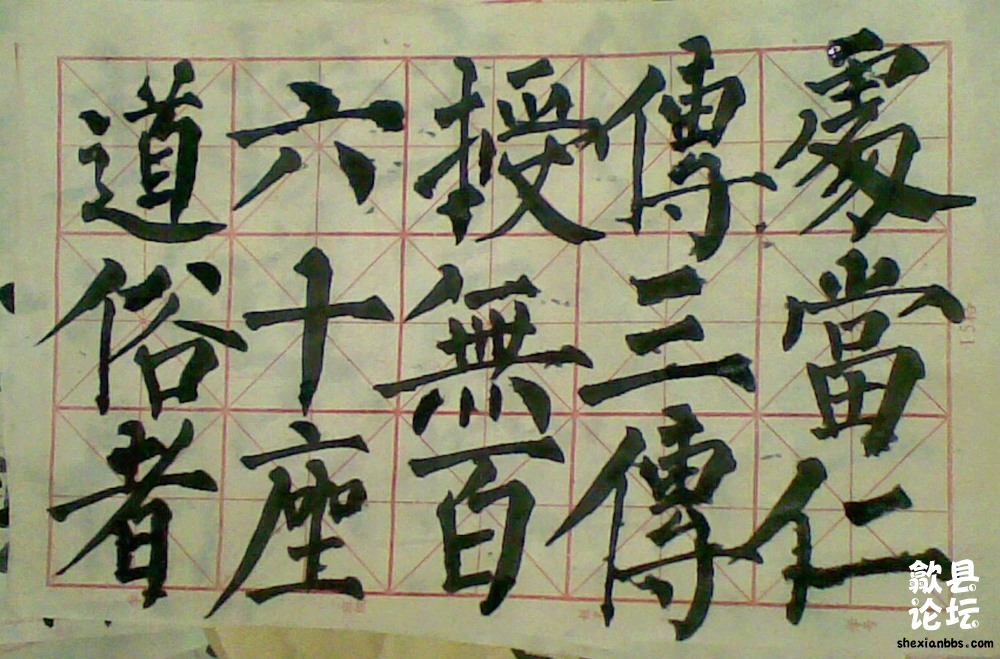 處當仁
傳三傳
授無百
六十座
道俗者
歙县
论坛
shexianbbs.com